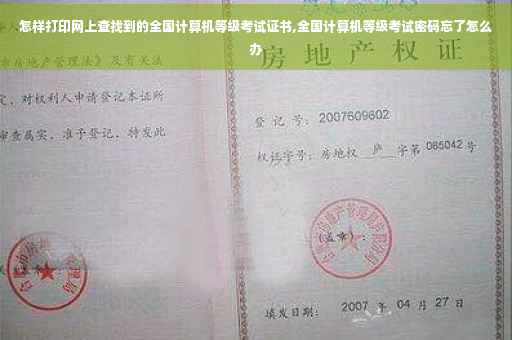 怎样打印网上查找到的全国计算机等级考试证书,全国计算机等级考试密码忘了怎么
办
房地产管理法》及有关法
定，对权利人申请登记本证所
审查属实，准予登记，特发此
房地产权证
登记号：2007609602
权证字号：房地权 庐 字第 085042 号
(盖章)：
填发日期： 2007 年 04 月 27 日